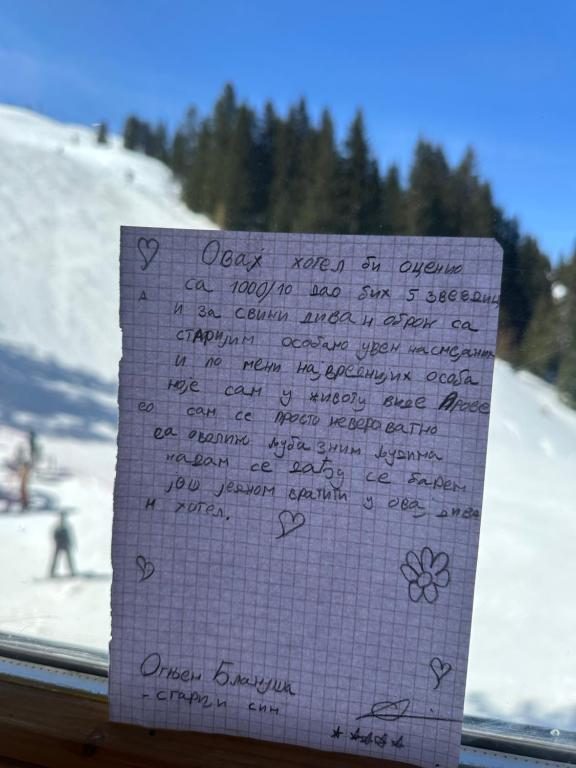 Овај хотел би оценио
са 1000/10 дао бих 5 звездиц
а и за свини диван оброк са
старијим особано увек насмејаним
и по мени највреднијих особа
које сам у животу виде Прове
ео сам се просто невероватно
са оволико љубазним људима
надам се дађу се барем
још једном вратити у овај дива
н хотел.
Огњен Блануша
- старији син